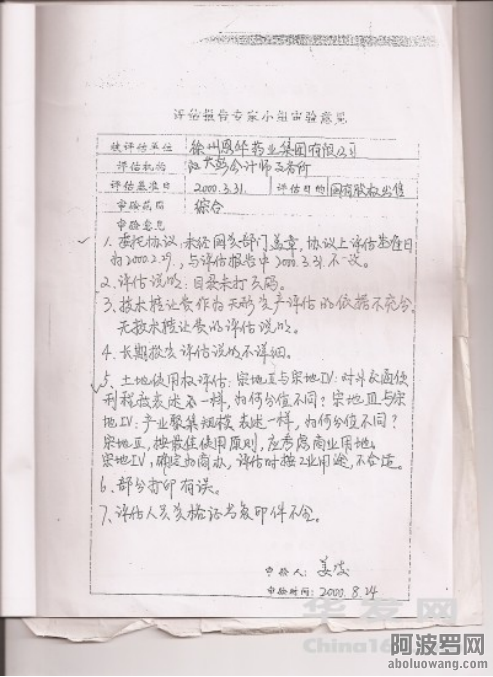 评估报告专家小组审验意见
被评估单位 徐州恩华药业集团有限公司
评估机构 江大会计师事务所
评估基准日 2000.3.31. 评估目的 国有股权出售
审验范围 综合
审验意见
1. 委托协议:未经国资部门盖章,协议上评估基准日
为2000.2.29,与评估报告中2000.3.31.不一致。
2. 评估说明:目录未打页码。
3. 技术转让费作为无形资产评估的依据不充分。
无技术转让费的评估说明。
4. 长期投资评估说明不详细。
5. 土地使用权评估:宗地Ⅲ与宗地Ⅳ:对外交通便
利程度表述不一样,为何分值不同?宗地Ⅲ与宗
地Ⅳ:产业聚集规模表述一样,为何分值不同?
宗地Ⅲ,按最佳使用原则,应考虑商业用地。
宗地Ⅳ,确定为商办,评估时按工业用途,不合适。
6. 部分打印有误。
7. 评估人员资格证书复印件不全。
审验人:姜
审验时间:2000.8.24
华发网
China16
阿波罗网
aboluowang.com